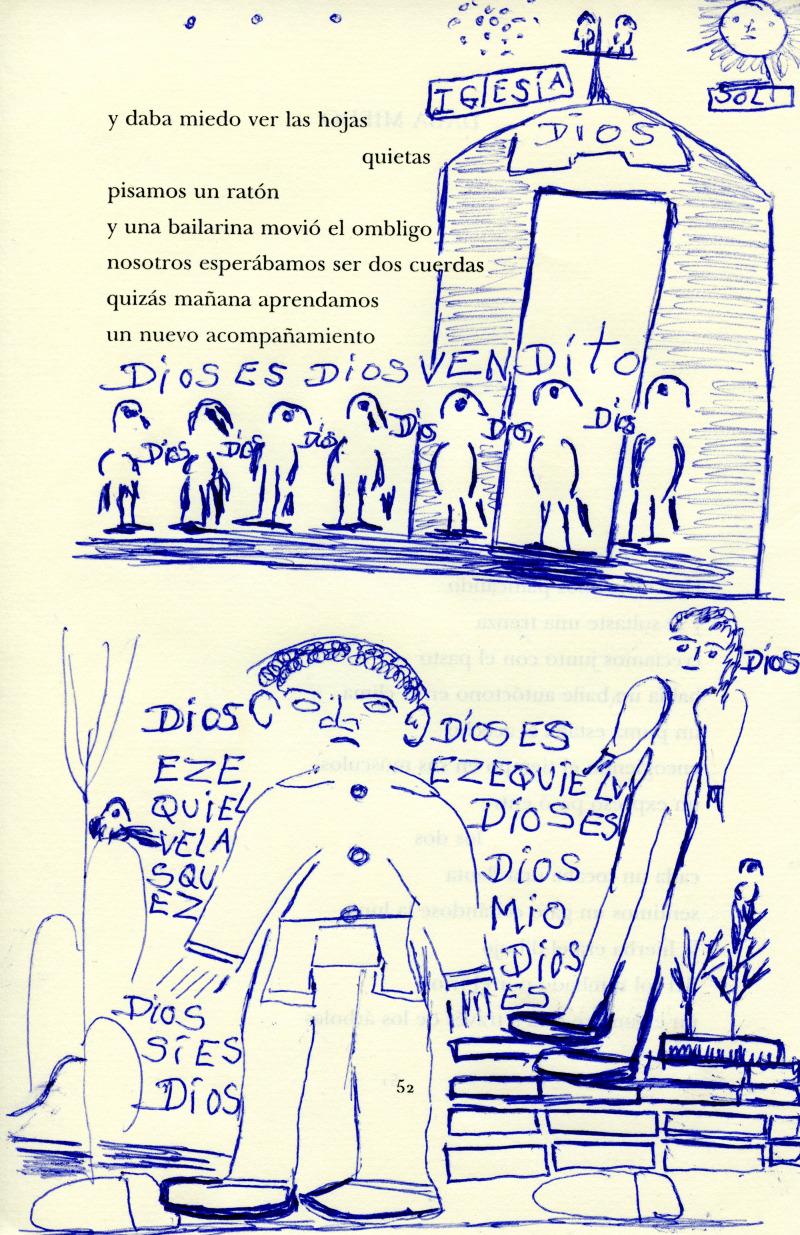 IGLESÍA
SOLT
DIOS
y daba miedo ver las hojas
quietas
pisamos un ratón
y una bailarina movió el ombligo
nosotros esperábamos ser dos cuerdas
quizás mañana aprendamos
un nuevo acompañamiento
DIOS ES DIOS VENDITO
DIOS DIOS DIOS DIOS DIOS DIOS
DIOS
DIOS
EZE
QUIEL
VELA
SQU
EZ
DIOS ES
EZEQUIEL V
DIOS ES
DIOS
MIO
DIOS
DIOS
SI ES
DIOS
52